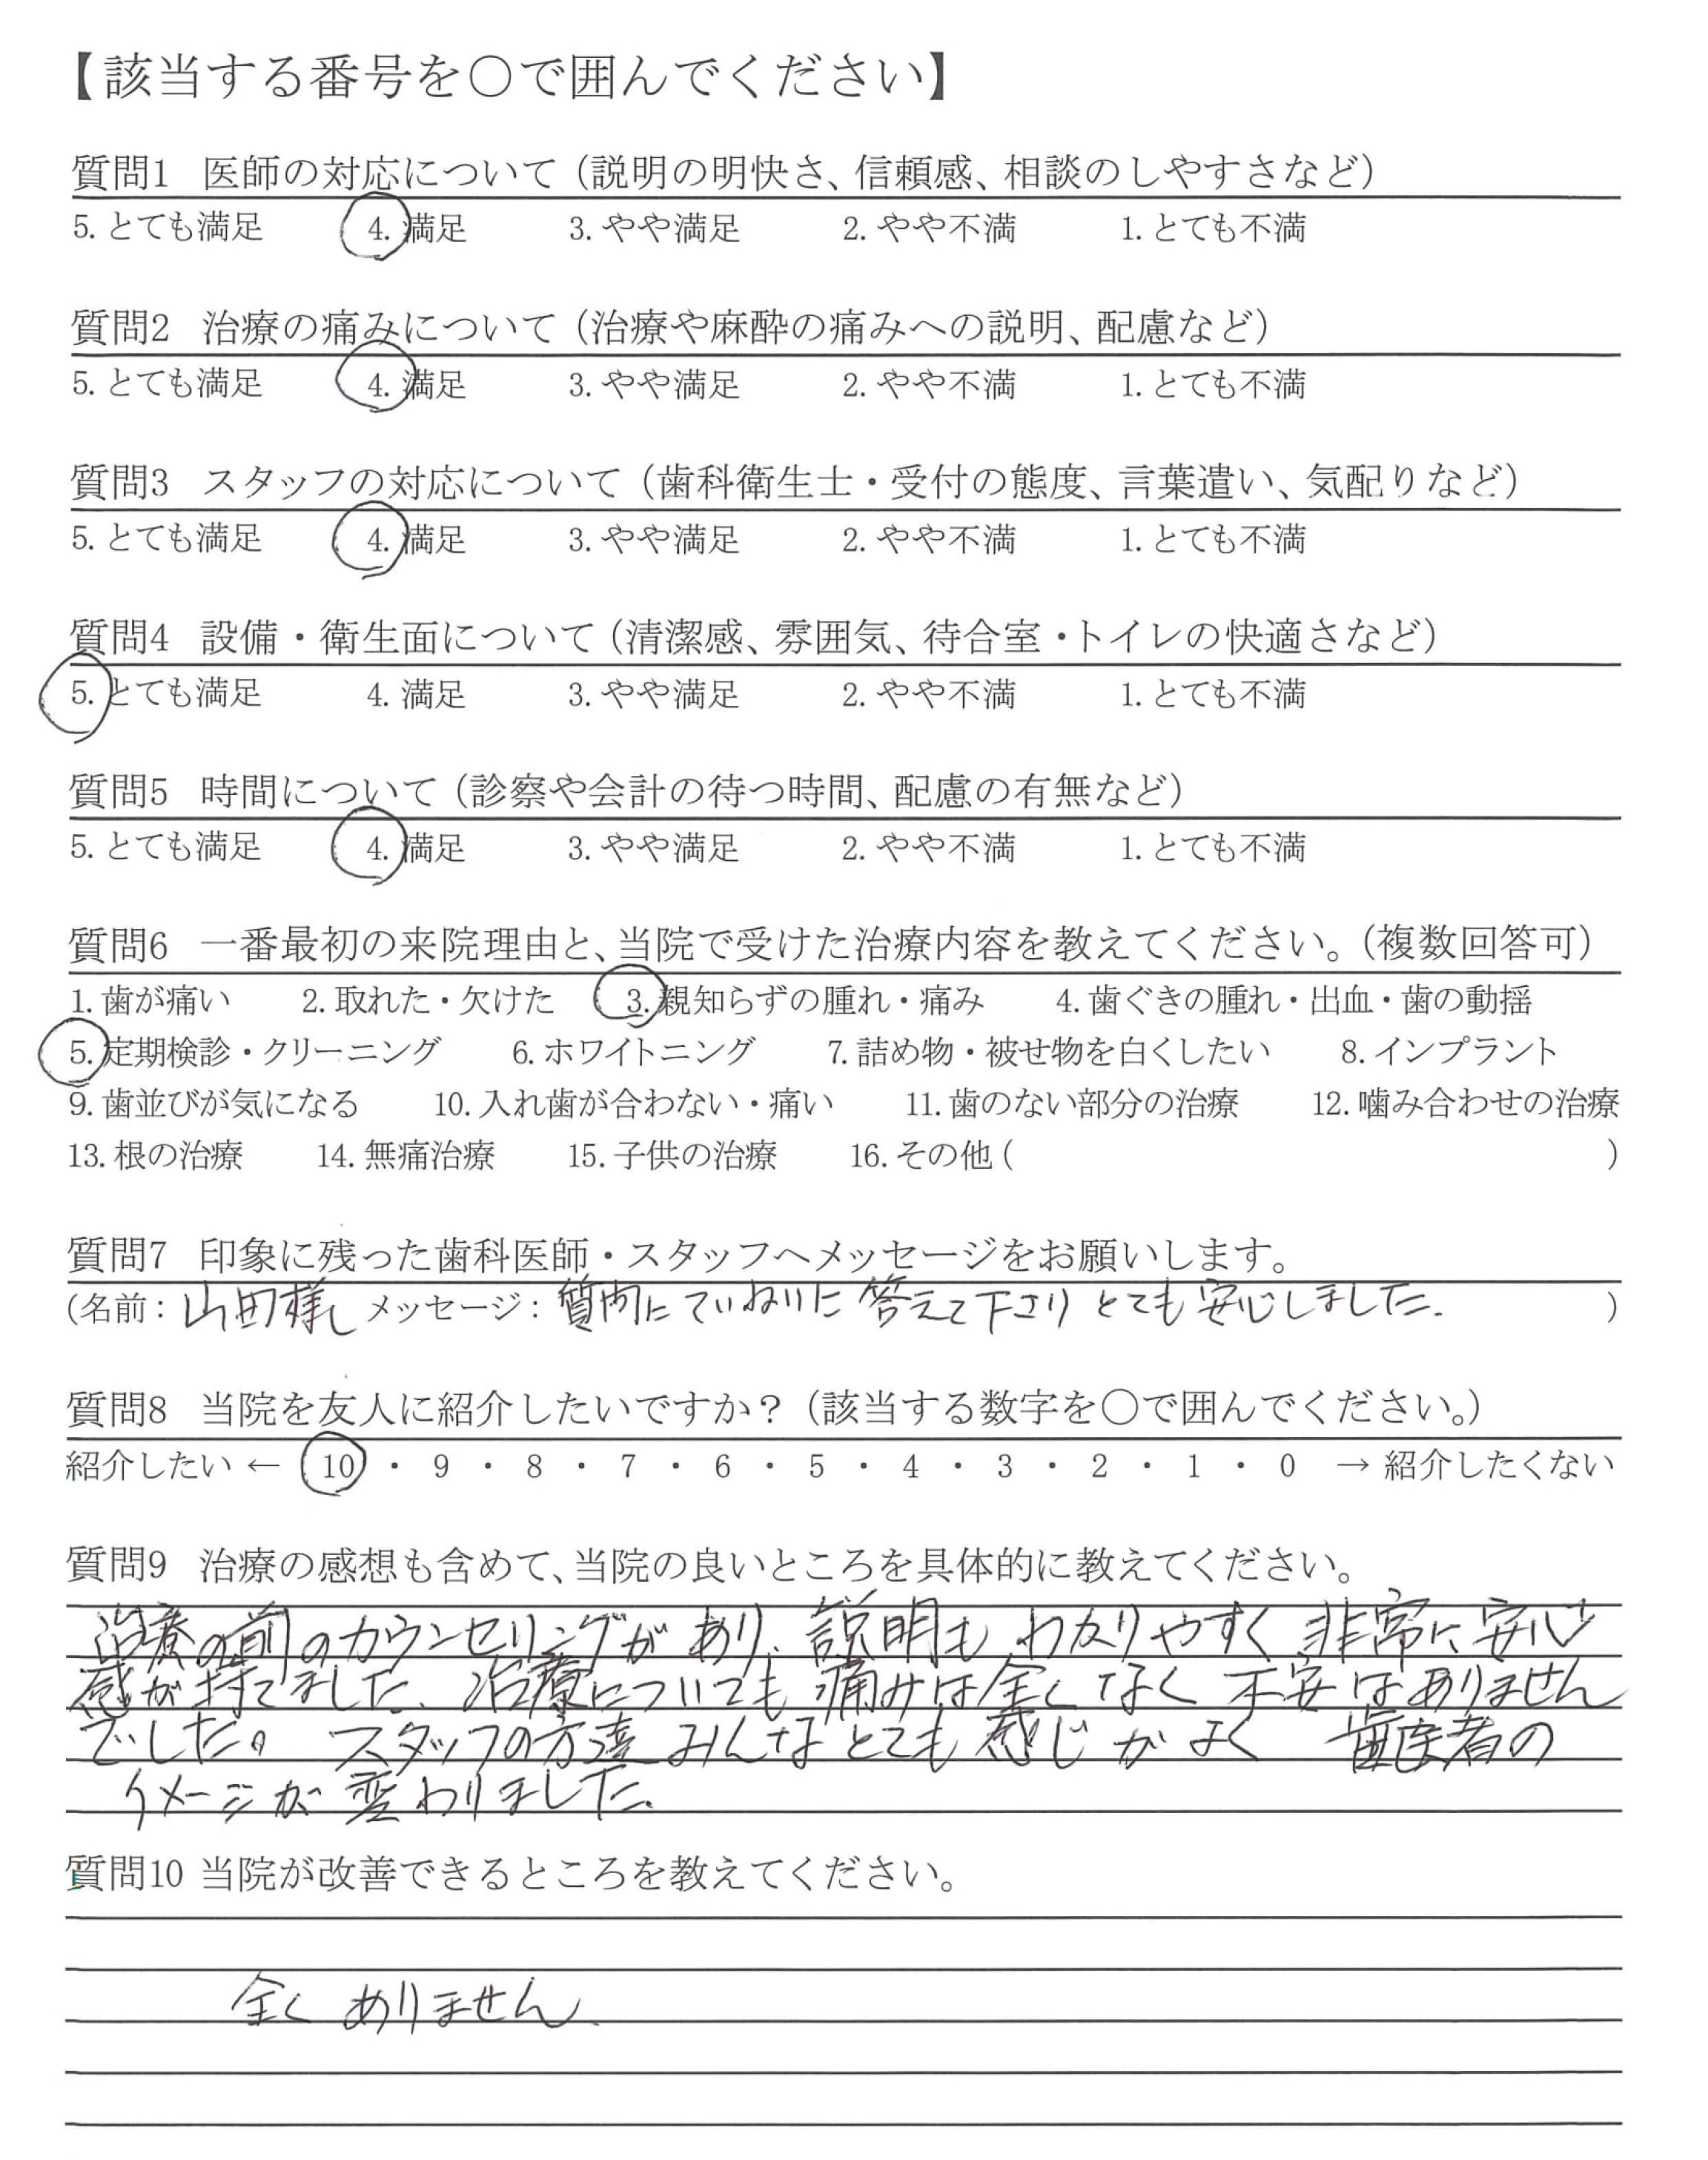 【該当する番号を○で囲んでください】
質問1 医師の対応について（説明の明快さ、信頼感、相談のしやすさなど）
5. とても満足 4. 満足 3. やや満足 2. やや不満 1. とても不満
質問2 治療の痛みについて（治療や麻酔の痛みへの説明、配慮など）
5. とても満足 4. 満足 3. やや満足 2. やや不満 1. とても不満
質問3 スタッフの対応について（歯科衛生士・受付の態度、言葉遣い、気配りなど）
5. とても満足 4. 満足 3. やや満足 2. やや不満 1. とても不満
質問4 設備・衛生面について（清潔感、雰囲気、待合室・トイレの快適さなど）
5. とても満足 4. 満足 3. やや満足 2. やや不満 1. とても不満
質問5 時間について（診察や会計の待つ時間、配慮の有無など）
5. とても満足 4. 満足 3. やや満足 2. やや不満 1. とても不満
質問6 一番最初の来院理由と、当院で受けた治療内容を教えてください。（複数回答可）
1. 歯が痛い 2. 取れた・欠けた 3. 親知らずの腫れ・痛み 4. 歯ぐきの腫れ・出血・歯の動揺
5. 定期検診・クリーニング 6. ホワイトニング 7. 詰め物・被せ物を白くしたい 8. インプラント
9. 歯並びが気になる 10. 入れ歯が合わない・痛い 11. 歯のない部分の治療 12. 噛み合わせの治療
13. 根の治療 14. 無痛治療 15. 子供の治療 16. その他（ ）
質問7 印象に残った歯科医師・スタッフへメッセージをお願いします。
（名前：山田様 メッセージ：質問にていねいに答えて下さりとても安心しました. ）
質問8 当院を友人に紹介したいですか？（該当する数字を○で囲んでください。）
紹介したい ← 10 ・ 9 ・ 8 ・ 7 ・ 6 ・ 5 ・ 4 ・ 3 ・ 2 ・ 1 ・ 0 → 紹介したくない
質問9 治療の感想も含めて、当院の良いところを具体的に教えてください。
治療の前のカウンセリングがあり、説明もわかりやすく非常に安心
感が持てました、治療についても痛みは全くなく不安はありません
でした。スタッフの方達みんなとても感じがよく歯医者の
イメージが変わりました.
質問10 当院が改善できるところを教えてください。
全くありません.